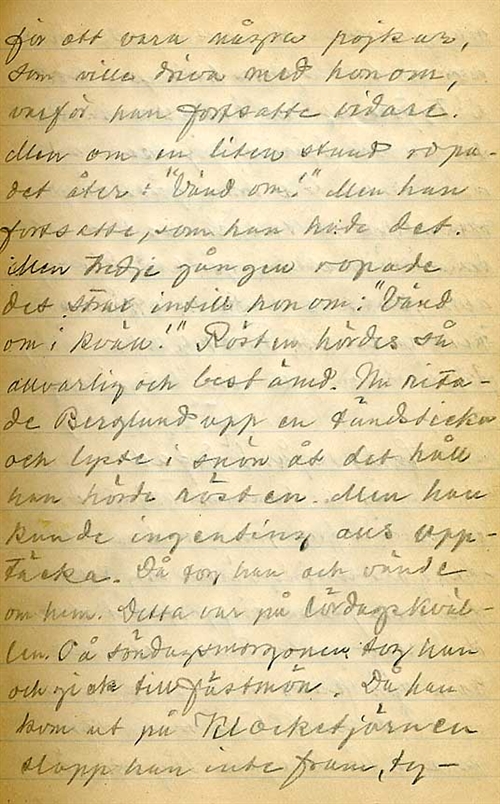 för att vara några pojkar,
som ville driva med honom,
varför han fortsatte vidare.
Men om en liten stund ropa-
det åter: "Vänd om!" Men han
fortsatte, som han hade det.
Men tredje gången ropade
det strax intill honom: "Vänd
om i kväll!" Rösten hördes så
allvarlig och bestämd. Nu rita-
de Berglund upp en tändsticka
och lyste i snön åt det håll
han hörde rösten. Men han
kunde ingenting alls upp-
täcka. Då tog han och vände
om hem. Detta var på lördagskväl-
len. På söndagsmorgonen tog han
och gick till fästmön. Då han
kom ut på Klocketjärnen
slapp han inte fram, ty –